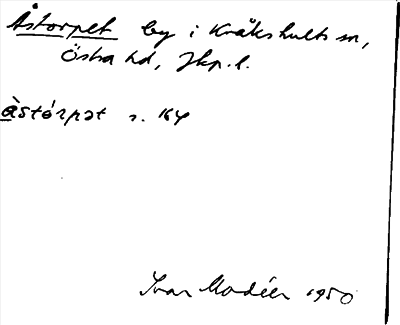 Åstorpet by i Kråkshults sn,
Östra hd, Jkp. l.
àstórpət s. 164
Ivar Modéer 1950